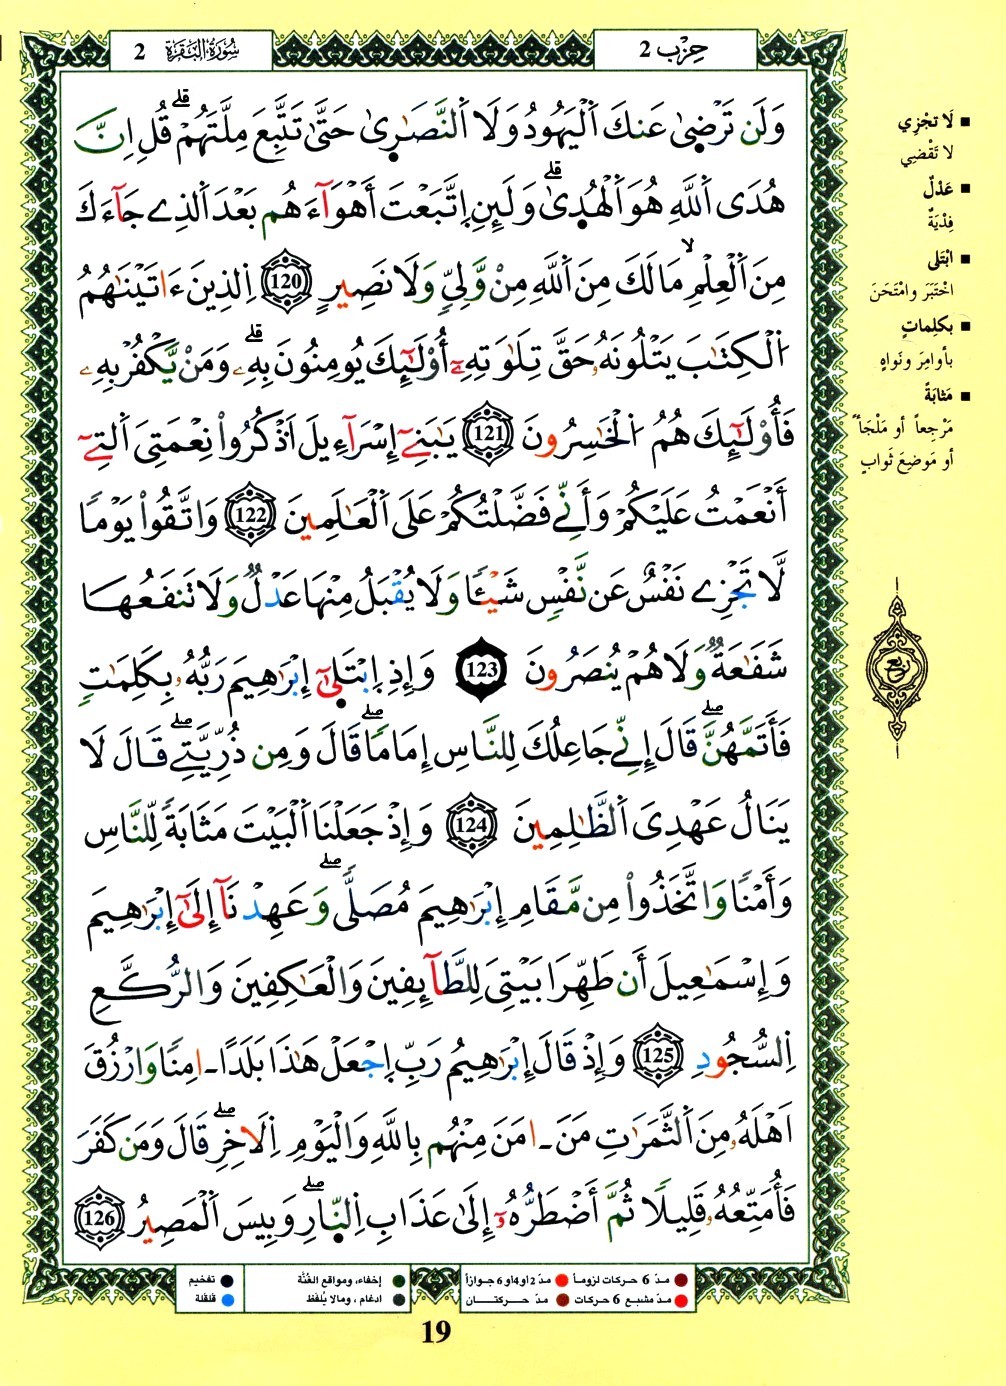 سُورَةُ البَقَرَة 2
حِزْب 2
وَلَن تَرْضىٰ عَنكَ اَ۬لْيَهُودُ وَلَا اَ۬لنَّصَٰرىٰ حَتَّىٰ تَتَّبِعَ مِلَّتَهُمْۖ قُلِ اِنَّ
هُدَى اَ۬للَّهِ هُوَ اَ۬لْهُدىٰۖ وَلَئِنِ اِ۪تَّبَعْتَ أَهْوَآءَهُم بَعْدَ اَ۬لذِے جَآءَكَ
مِنَ اَ۬لْعِلْمِۙ مَا لَكَ مِنَ اَ۬للَّهِ مِنْ وَّلِيّٖ وَلَا نَصِيرٍ 120 اِ۬لذِينَ ءَاتَيْنَٰهُمُ
اُ۬لْكِتَٰبَ يَتْلُونَهُۥ حَقَّ تِلَٰوَتِهِۦٓ أُوْلَٰٓئِكَ يُومِنُونَ بِهِۦۖ وَمَنْ يَّكْفُرْ بِهِۦ
فَأُوْلَٰٓئِكَ هُمُ اُ۬لْخَٰسِرُونَ 121 يَٰبَنِےٓ إِسْرَآءِيلَ اَ۟ذْكُرُواْ نِعْمَتِيَ اَ۬لتِےٓ
أَنْعَمْتُ عَلَيْكُمْ وَأَنِّے فَضَّلْتُكُمْ عَلَى اَ۬لْعَٰلَمِينَ 122 وَاتَّقُواْ يَوْماٗ
لَّا تَجْزِے نَفْسٌ عَن نَّفْسٖ شَيْـٔاٗ وَلَا يُقْبَلُ مِنْهَا عَدْلٞ وَلَا تَنفَعُهَا
شَفَٰعَةٞ وَلَا هُمْ يُنصَرُونَ 123 وَإِذِ اِ۪بْتَلىٰٓ إِبْرَٰهِيمَ رَبُّهُۥ بِكَلِمَٰتٖ
فَأَتَمَّهُنَّۖ قَالَ إِنِّے جَاعِلُكَ لِلنَّاسِ إِمَاماٗۖ قَالَ وَمِن ذُرِّيَّتِےۖ قَالَ لَا
يَنَالُ عَهْدِيَ اَ۬لظَّٰلِمِينَ 124 وَإِذْ جَعَلْنَا اَ۬لْبَيْتَ مَثَابَةٗ لِّلنَّاسِ
وَأَمْناٗ وَاتَّخَذُواْ مِن مَّقَامِ إِبْرَٰهِيمَ مُصَلّٗيۖ وَعَهِدْنَآ إِلَىٰٓ إِبْرَٰهِيمَ
وَإِسْمَٰعِيلَ أَن طَهِّرَا بَيْتِيَ لِلطَّآئِفِينَ وَالْعَٰكِفِينَ وَالرُّكَّعِ
اِ۬لسُّجُودِ 125 وَإِذْ قَالَ إِبْرَٰهِيمُ رَبِّ اِ۪جْعَلْ هَٰذَا بَلَداً ـ اٰمِناٗ وَارْزُقَ
اَهْلَهُۥ مِنَ اَ۬لثَّمَرَٰتِ مَنَ ـ اٰمَنَ مِنْهُم بِاللَّهِ وَالْيَوْمِ اِ۬لَاخِرِۖ قَالَ وَمَن كَفَرَ
فَأُمَتِّعُهُۥ قَلِيلاٗ ثُمَّ أَضْطَرُّهُۥٓ إِلَىٰ عَذَابِ اِ۬لنّ۪ارِۖ وَبِيسَ اَ۬لْمَصِيرُ 126
■ لَا تَجْزِي
لا تَقْضِي
■ عَدْلٌ
فِدْيَةٌ
■ ابْتَلى
اخْتَبَرَ وامْتَحَنَ
■ بكَلِماتٍ
بأوامِرَ ونَواهٍ
■ مَثابَةً
مَرْجِعاً أو مَلْجَأً
أو مَوضِعَ ثَوابٍ
ربع
● مدّ 6 حركات لزوماً ● مدّ 2 أو 4 أو 6 جوازاً
● مدّ مشبع 6 حركات ● مدّ حركتان
● إخفاء، ومواقع الغُنَّة ● تفخيم
● ادغام ، ومالا يُلفَظ ● قلقلة
19